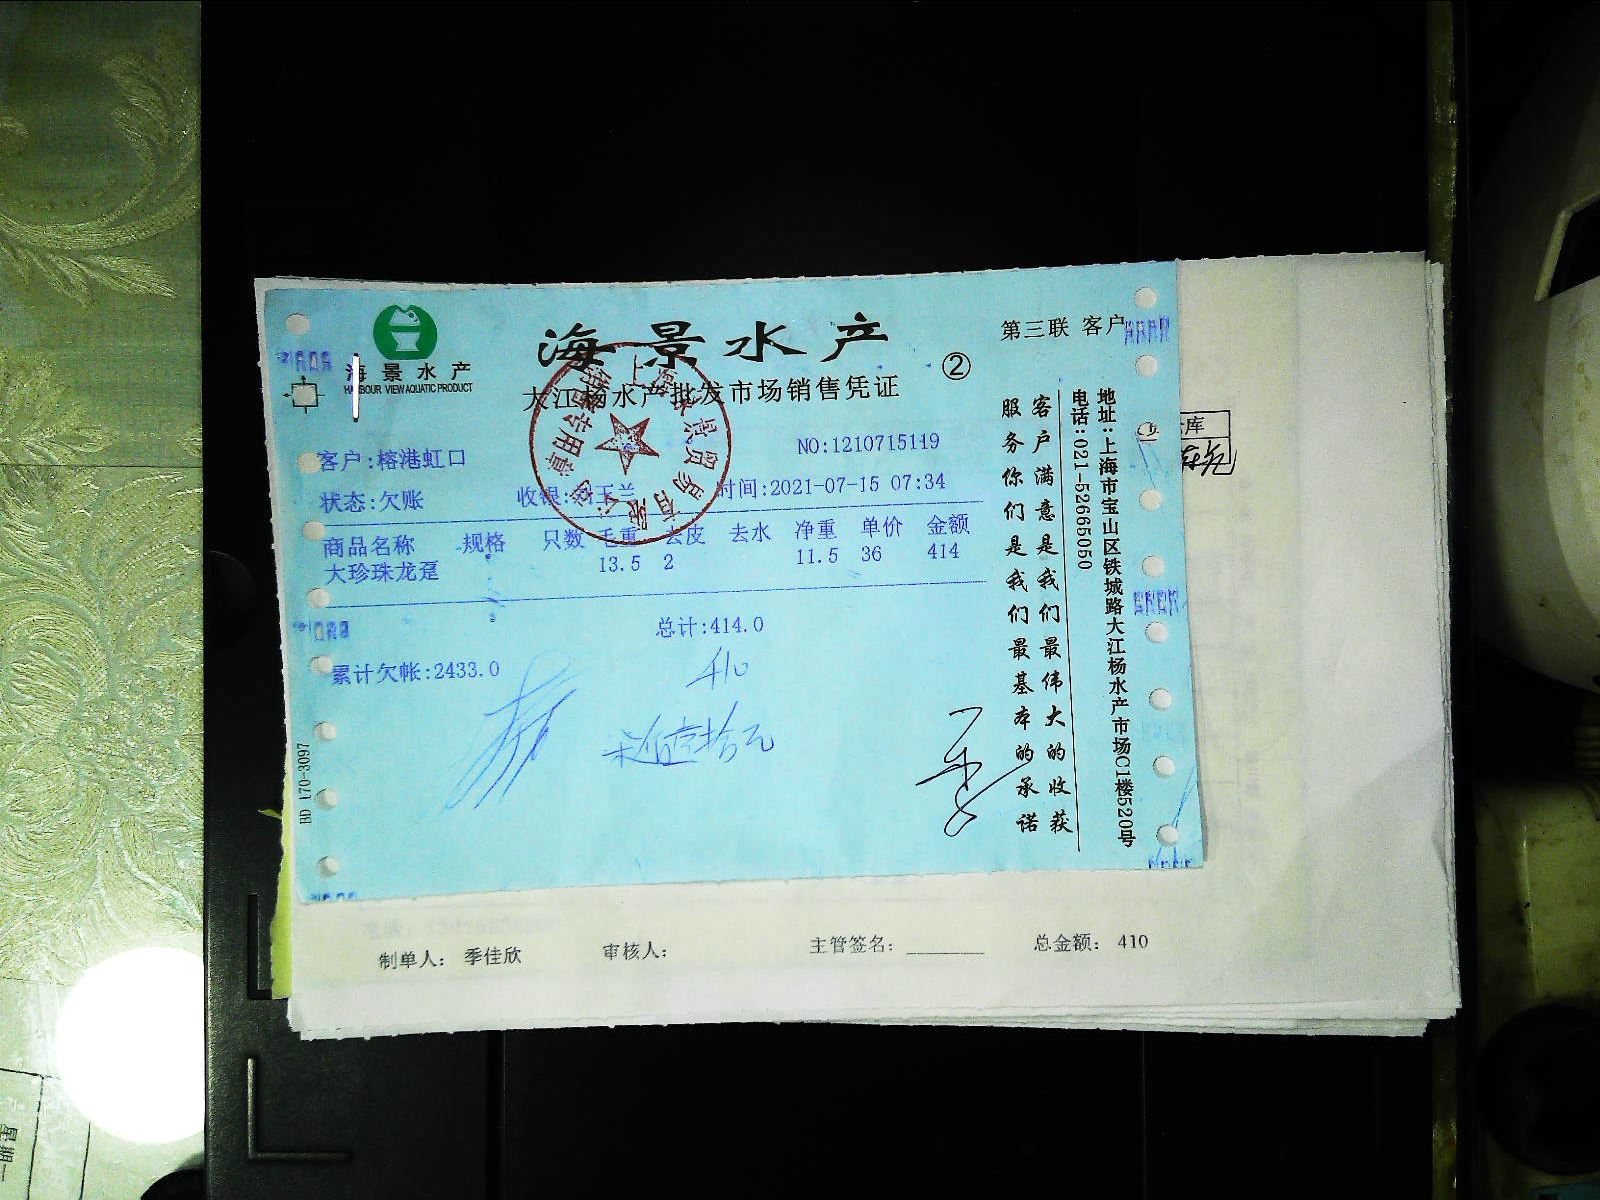 海景水产
HARBOUR VIEW AQUATIC PRODUCT
海景水产
大江杨水产批发市场销售凭证
②
第三联 客户
客户:榕港虹口
NO:1210715149
状态:欠账
收银:
玉兰
时间:2021-07-15 07:34
商品名称 规格 只数 毛重 去皮 去水 净重 单价 金额
大珍珠龙趸 13.5 2 11.5 36 414
总计:414.0
累计欠帐:2433.0
410
客户满意是我们最伟大的收获
服务你们是我们最基本的承诺
地址:上海市宝山区铁城路大江杨水产市场C1楼520号
电话:021-52665050
BD 170-3097
专用章
库
制单人: 季佳欣 审核人: 主管签名: 总金额: 410
星期一